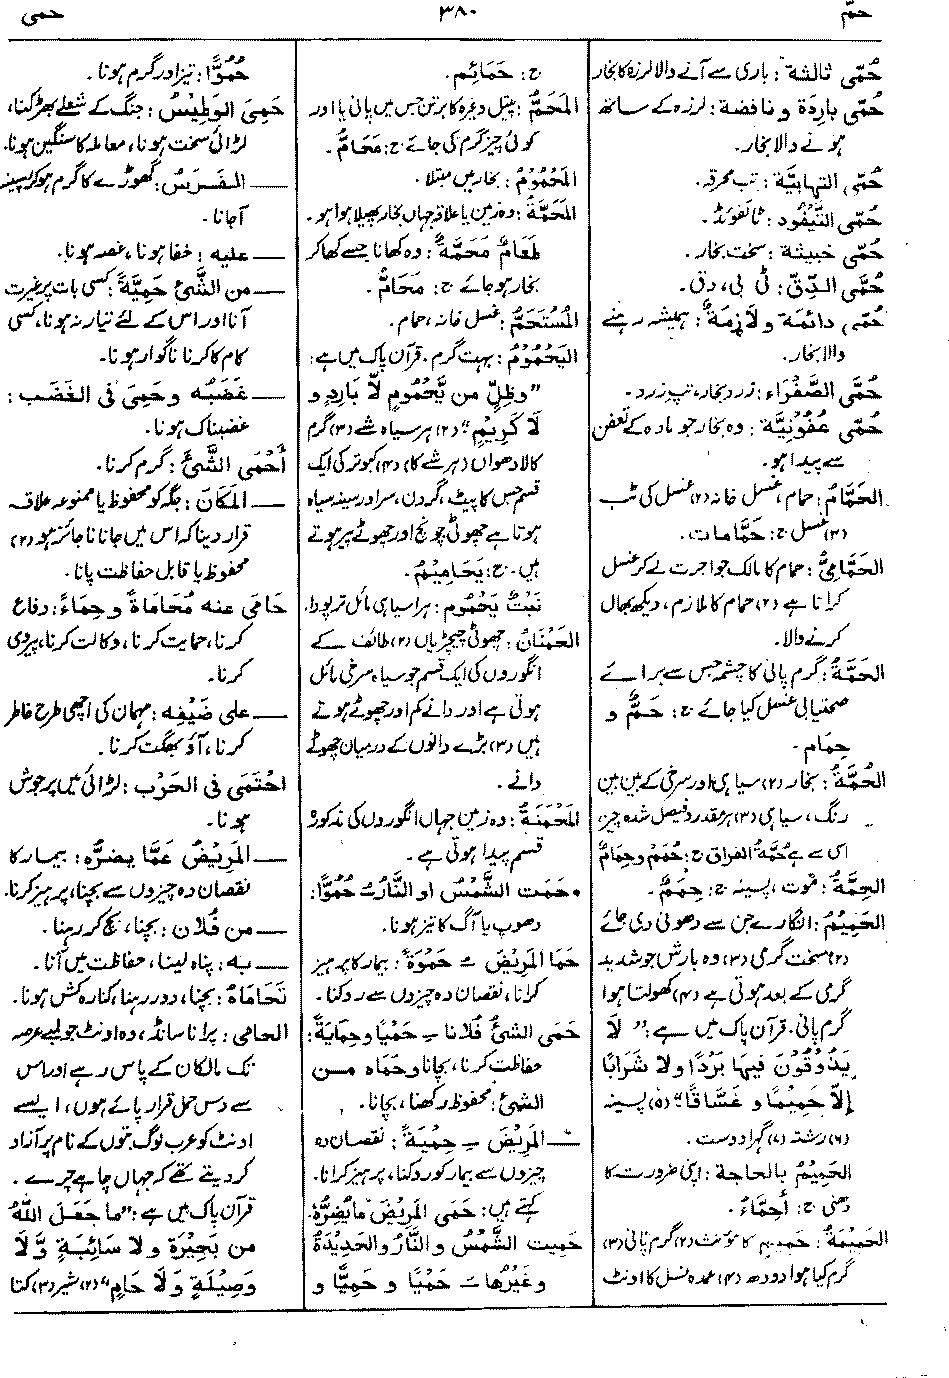 حمّ
۳۸۰
حمی
حُمّی ثالثة: باری سے آنے والا لرزہ کا بخار
حُمّی باردَة و نافضة: لرزہ کے ساتھ
ہونے والا بخار۔
حُمّی التهابیَّة: تپ محرقہ۔
حُمّی التَّیفُود: ٹائفوئڈ۔
حُمّی خبیثة: سخت بخار۔
حُمَّی الدِّقّ: ٹی بی، دق۔
حُمّی دائمَة ولازِمَةٌ: ہمیشہ رہنے
والا بخار۔
حُمَّی الصَّفْرَاء: زرد بخار، تپ زرد۔
حُمّی عفُوْنِیَّة: وہ بخار جو مادہ کے تعفن
سے پیدا ہو۔
الحَمَّامُ: حمام، غسل خانہ (۲) غسل کی ٹب
(۳) غسل ج: حَمَّامات۔
الحَمَّامِیُّ: حمام کا مالک جو اجرت لے کر غسل
کراتا ہے (۲) حمام کا ملازم، دیکھ بھال
کرنے والا۔
الحَمَّةُ: گرم پانی کا چشمہ جس سے برائے
صحتیابی غسل کیا جائے ج: حَمٌّ و
حِمام۔
الحُمَّةُ: بخار (۲) سیاہی اور سرخی کے بین بین
رنگ، سیاہی (۳) ہر مقدر و فیصل شدہ چیز،
اسی سے ہے حُمَّةُ الفراق ج: حُمَمٌ وحِمامٌ
الحِمَّةُ: موت، پسینہ ج: حِمَمٌ۔
الحَمِیْمُ: انگارے جن سے دھونی دی جائے
(۲) سخت گرمی (۳) وہ بارش جو شدید
گرمی کے بعد ہوتی ہے (۴) کھولتا ہوا
گرم پانی۔ قرآن پاک میں ہے: ”لَا
یَذُوْقُوْنَ فِیهَا بَرْدًا ولا شَرَابًا
إلاّ حَمِیْمًا و غَسَّاقًا“ (۵) پسینہ
(۶) رشتہ (۷) گہرا دوست۔
الحَمِیْمُ بِالحاجة: اپنی ضرورت کا
دھنی ج: أَحِمَّاءُ۔
الحَمِیْمَةُ: حَمِیم کا مؤنث (۲) گرم پانی (۳)
گرم کیا ہوا دودھ (۴) عمدہ نسل کا اونٹ
ج: حَمَائِم۔
المِحَمُّ: پیتل وغیرہ کا برتن جس میں پانی یا اور
کوئی چیز گرم کی جائے ج: مَحَامُّ۔
المَحْمُوْمُ: بخار میں مبتلا۔
المَحَمَّةُ: وہ زمین یا علاقہ جہاں بخار پھیلا ہوا ہو۔
طَعَامٌ مَحَمَّةٌ: وہ کھانا جسے کھا کر
بخار ہو جائے ج: مَحَامُّ۔
المُسْتَحَمُّ: غسل خانہ، حمام۔
الیَحْمُوْمُ: بہت گرم۔ قرآن پاک میں ہے:
”وظِلٍّ من یَّحْمُومٍ لَّا بَارِدٍ و
لَا کَرِیْمٍ“ (۲) ہر سیاہ شے (۳) گرم
کالا دھواں (ہر شے کا) (۴) کبوتر کی ایک
قسم جس کا پیٹ، گردن، سر اور سینہ سیاہ
ہوتا ہے چھوٹی چونچ اور چھوٹے پیر ہوتے
ہیں۔ ج: یَحَامِیْمُ۔
نَبْتٌ یَحْمُوم: ہرا سیاہی مائل تر پودا۔
الحَمْنَانُ: چھوٹی چیچڑیاں (۲) طائف کے
انگوروں کی ایک قسم جو سیاہ سرخی مائل
ہوتی ہے اور دانے کم اور چھوٹے ہوتے
ہیں (۳) بڑے دانوں کے درمیان چھوٹے
دانے۔
المَحْمَنَةُ: وہ زمین جہاں انگوروں کی مذکورہ
قسم پیدا ہوتی ہے۔
• حَمَت الشَّمْسُ او النَّارُ ـُ حُمُوًّا:
دھوپ یا آگ کا تیز ہونا۔
حَمَا المَرِیْضَ ـُ حَمْوَةً: بیمار کا پرہیز
کرانا، نقصان دہ چیزوں سے روکنا۔
حَمَی الشیَٔ فُلانا ـِ حَمْیًا وحِمَایَةً:
حفاظت کرنا، بچانا وحَمَاه مـن
الشیٔ: محفوظ رکھنا، بچانا۔
ــــ المَرِیْضَ ـِ حِمْیَةً: نقصان دہ
چیزوں سے بیمار کو روکنا، پرہیز کرانا۔
کہتے ہیں: حَمَی المَرِیْضَ مَایَضُرُّهٗ۔
حَمِیت الشَّمْسُ و النَّارُ والحَدِیْدَةُ
وغَیْرُهَا ـَ حَمْیًا و حَمِیًّا و
حُمُوًّا: تیز اور گرم ہونا۔
حَمِیَ الوَطِیْسُ: جنگ کے شعلے بھڑکنا،
لڑائی سخت ہونا، معاملہ کا سنگین ہونا۔
ــــ الفَرَسُ: گھوڑے کا گرم ہو کر پسینہ
آجانا۔
ــــ علیه: خفا ہونا، غصہ ہونا۔
ــــ من الشَّیٔ حَمِیَّةً: کسی بات پر غیرت
آنا اور اس کے لئے تیار نہ ہونا، کسی
کام کا کرنا ناگوار ہونا۔
ــــ غَضَبُه وحَمِیَ فی الغَضَب:
غضبناک ہونا۔
أَحْمَی الشَّیَٔ: گرم کرنا۔
ــــ المَکَانَ: جگہ کو محفوظ یا ممنوعہ علاقہ
قرار دینا کہ اس میں جانا ناجائز ہو (۲)
محفوظ یا قابل حفاظت پانا۔
حَامَی عنه مُحَامَاةً و حِمَاءً: دفاع
کرنا، حمایت کرنا، وکالت کرنا، پیروی
کرنا۔
ــــ علی ضَیْفِه: مہمان کی اچھی طرح خاطر
کرنا، آؤ بھگت کرنا۔
احْتَمَی فی الحَرْب: لڑائی میں پرجوش
ہونا۔
ــــ المَرِیْضُ عَمَّا یضرُّه: بیمار کا
نقصان دہ چیزوں سے بچنا، پرہیز کرنا۔
ــــ من فُلَان: بچنا، بچ کر رہنا۔
ــــ به: پناہ لینا، حفاظت میں آنا۔
تَحَامَاهُ: بچنا، دور رہنا، کنارہ کش ہونا۔
الحامِی: پرانا سانڈ، وہ اونٹ جو لمبے عرصہ
تک مالکان کے پاس رہے اور اس
سے دس حمل قرار پائے ہوں، ایسے
اونٹ کو عرب لوگ بتوں کے نام پر آزاد
کر دیتے تھے کہ جہاں چاہے چرے۔
قرآن پاک میں ہے: ”ما جَعَلَ اللّٰهُ
من بَحِیْرَةٍ ولا سَائِبَةٍ وَّلَا
وَصِیْلَةٍ وَلَا حَامٍ“ (۲) شیر (۳) کتا